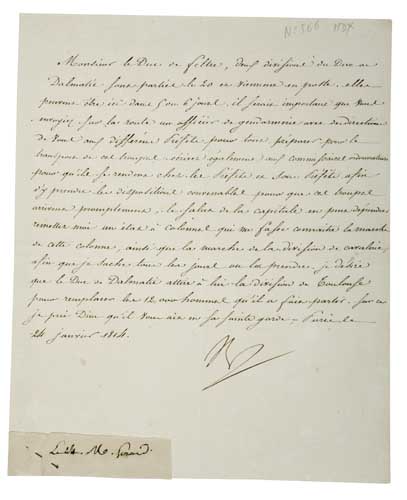 N° 566
Monsieur le Duc de Feltre, deux divisions du Duc de
Dalmatie sont parties le 20 et viennent en poste, elles
peuvent être ici dans 5 ou 6 jours. il serait important que vous
envoyiez sur la route un officier de gendarmerie avec des directions
de vous aux différens Préfets pour tout préparer pour le
transport de ces troupes. écrivez également aux commissaires ordonnateurs
pour qu'ils se rendent chez les Préfets et Sous Préfets afin
d'y prendre les dispositions convenables pour que ces troupes
arrivent promptement, le salut de la capitale en peut dépendre
remettez moi un état à colonnes qui me fasse connaître la marche
de cette colonne, ainsi que la marche de la division de cavalerie
afin que je sache tous les jours où les prendre. je désire
que le Duc de Dalmatie attire à lui la division de Toulouse
pour remplacer les 12,000 hommes qu'il a fait partir. sur ce
je prie Dieu qu'il vous ait en sa sainte garde - Paris le
24 janvier 1814.